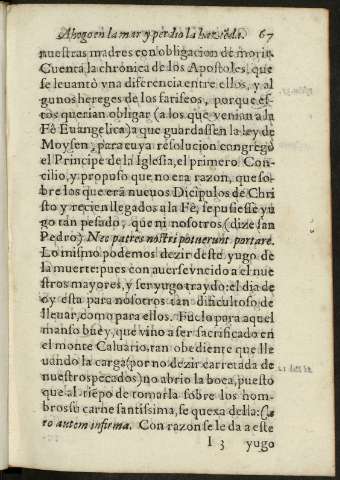 Ahogo en la mar y perdio la haz, &c. 67
nuestras madres con obligacion de morir.
Cuenta la chronica de los Apostoles, que
se leuantò vna diferencia entre ellos, y al
gunos hereges de los fariseos, porque es-
tos querian obligar (a los que venian a la
Fè Euangelica) a que guardassen la ley de
Moysen, para cuya resolucion congregò
el Principe de la Iglesia, el primero Con-
cilio, y propuso que no era razon, que so-
bre los que erã nueuos Dicipulos de Chri
sto y recien llegados a la Fè, se pusiesse yu
go tan pesado, que ni nosotros (dize san
Pedro) Nec patres nostri potuerunt portare.
Lo mismo podemos dezir deste yugo de
la muerte: pues con auerse vncido a el nue
stros mayores, y ser yugo traydo: el dia de
oy esta para nosotros tan dificultoso de
lleuar, como para ellos. Fuelo para aquel
manso buey, que vino a ser sacrificado en
el monte Caluario, tan obediente que lle
uando la carga (por no dezir carretada de
nuestros pecados) no abrio la boca, puesto
que al tiẽpo de tomarla sobre los hom-
bros su carne santissima, se quexa della: Ca
ro autem infirma. Con razon se le da a este
I 3 yugo